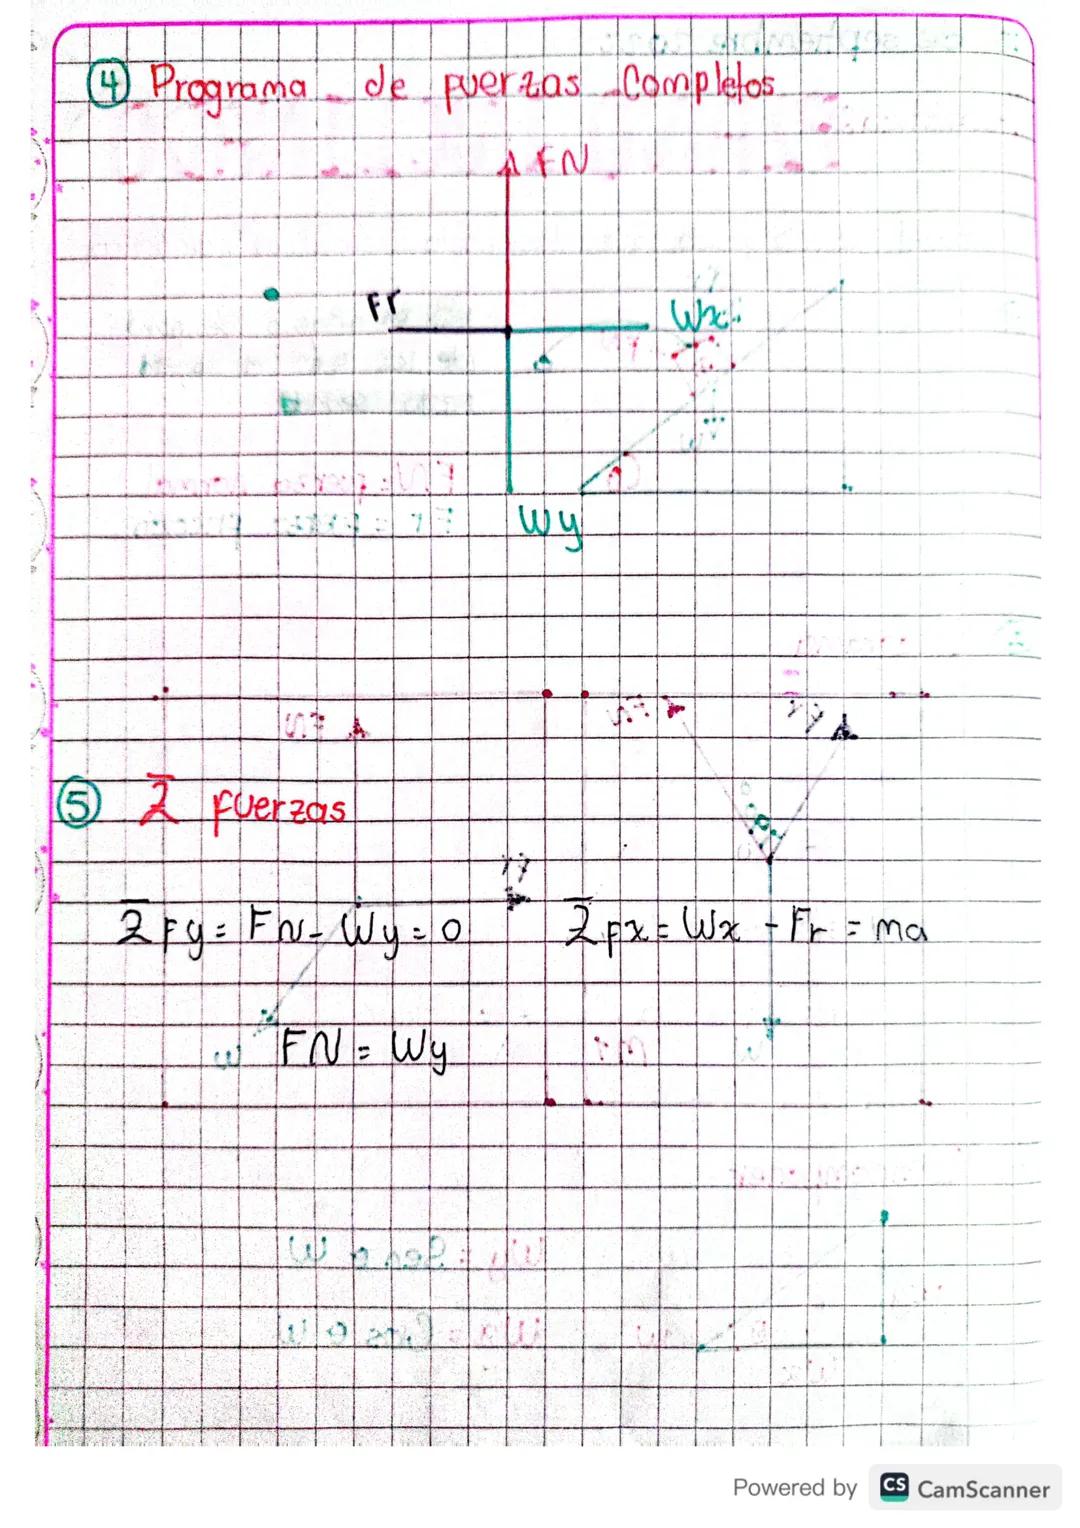 ④ Programa de fuerzas Completos
FN
Fr
Wx
Wy
⑤ Σ fuerzas
ΣFy = FN - Wy = 0 ΣFx = Wx - Fr = ma
FN = Wy
Powered by CS CamScanner